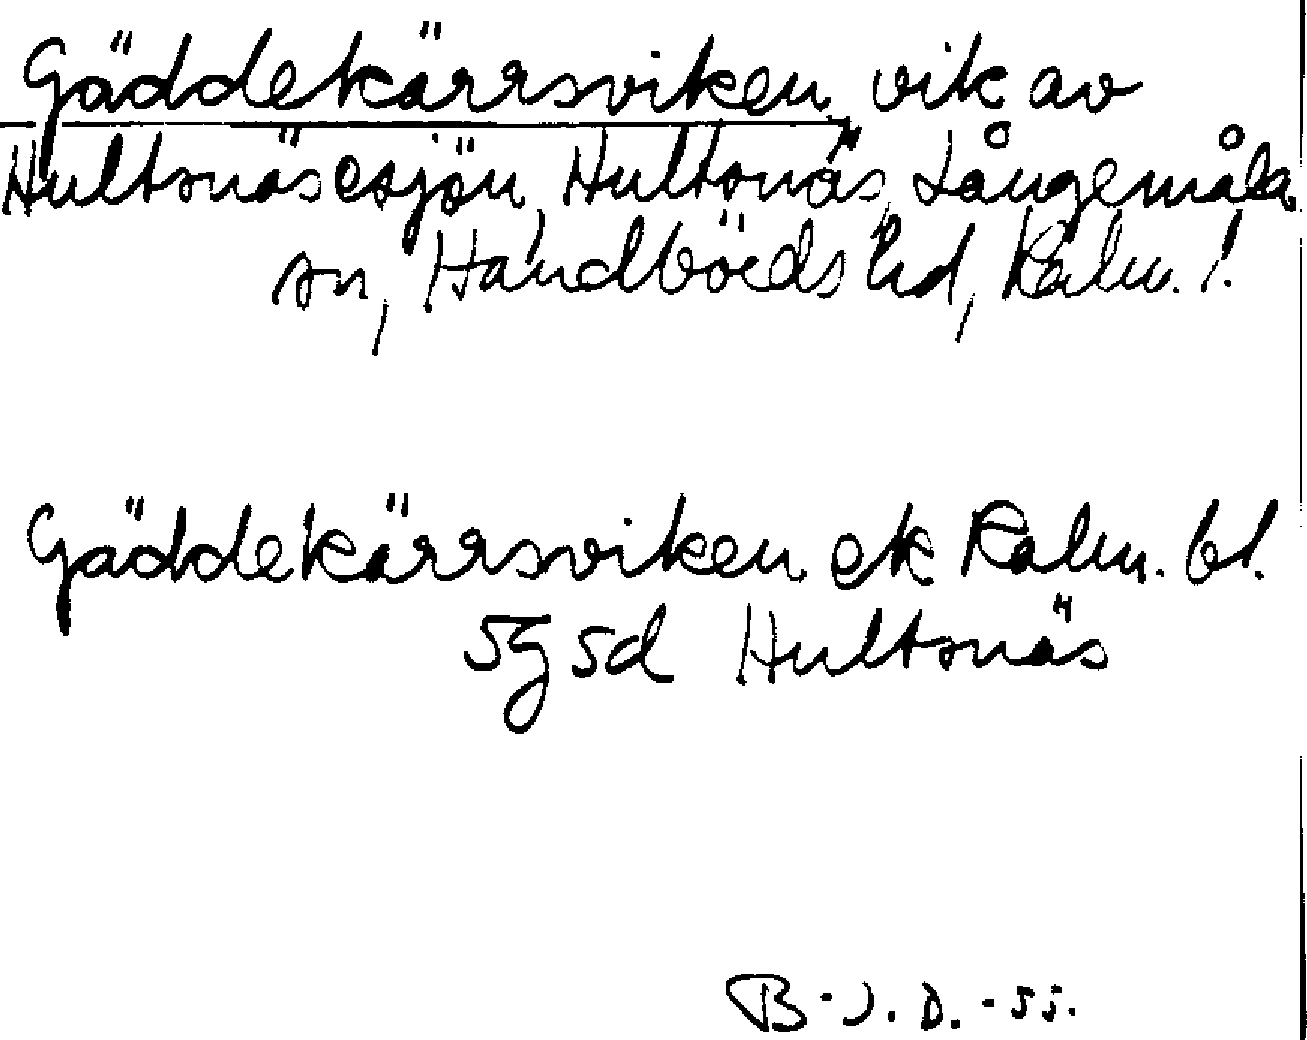 Gäddekärrsviken, vik av
Hultsnäsesjön, Hultsnäs, Långemåla
sn, Handbörds hd, Kalm. l.
Gäddekärrsviken ek Kalm. bl.
5g 5d Hultsnäs
B-J. D. - 55.